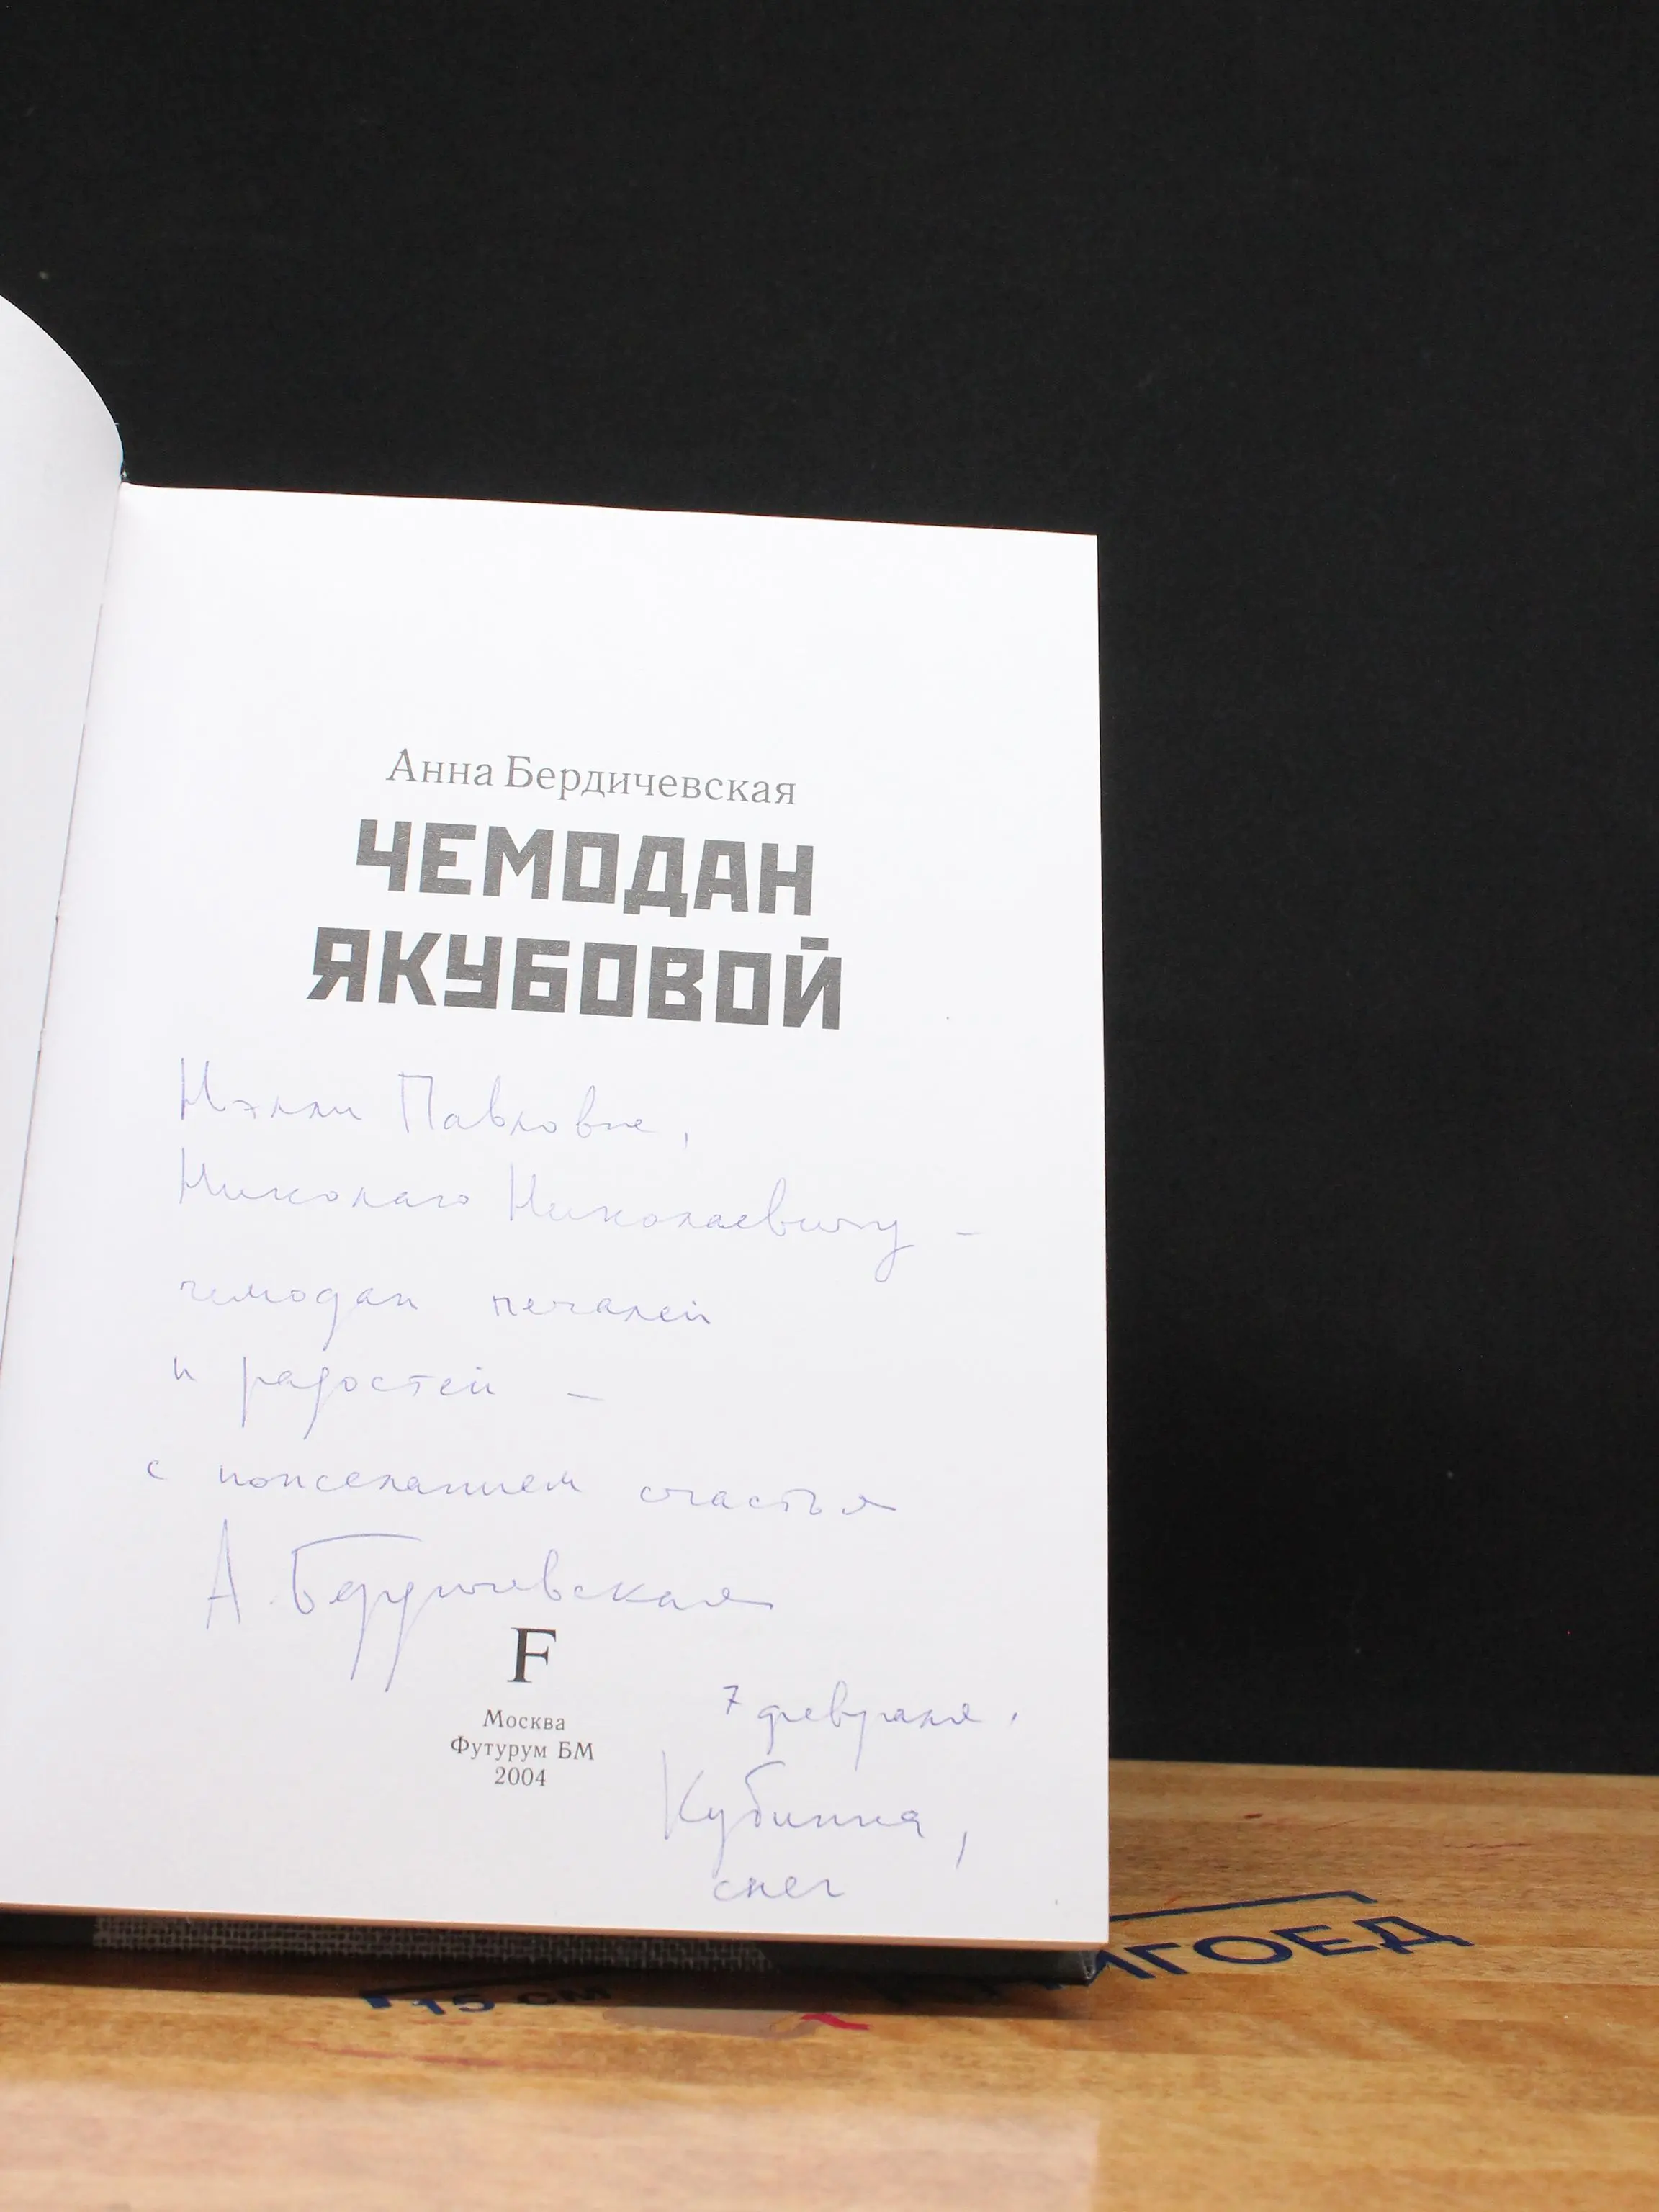 Анна Бердичевская
ЧЕМОДАН
ЯКУБОВОЙ
Нэлли Павловне,
Николаю Николаевичу –
чемодан печалей
и радостей –
с пожеланием счастья
А. Бердичевская
F
Москва
Футурум БМ
2004
7 февраля,
Кубинка,
снег
15 см
КНИГОЕД